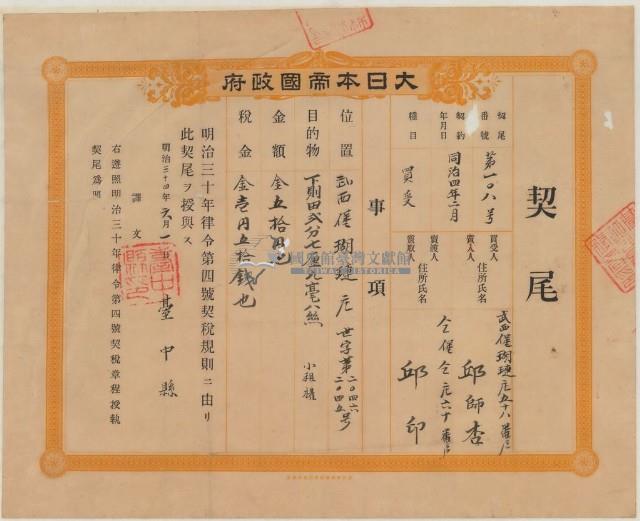 大日本帝國政府
契尾
契尾番號 第一〇八號
契約年月日 同治四年二月
種目 買受
買受人 賣人人 住所氏名 武西堡瑚璉庄五十八番戶 邱師杏
賣渡人 賣取人 住所氏名 仝堡仝庄六十番戶 邱印
事項
位置 武西堡瑚璉庄 世字第二〇四六 二〇四五號
目的物 下則田貳分七厘九毫八絲 小租權
金額 金五拾円也
稅金 金壱円五拾錢也
明治三十年律令第四號契稅規則ニ由リ
此契尾ヲ授與ス
明治三十四年 月一日 臺中縣
譯文
右遵照明治三十年律令第四號契稅章程授執
契尾為照
國史館臺灣文獻館
TAIWAN HISTORICA